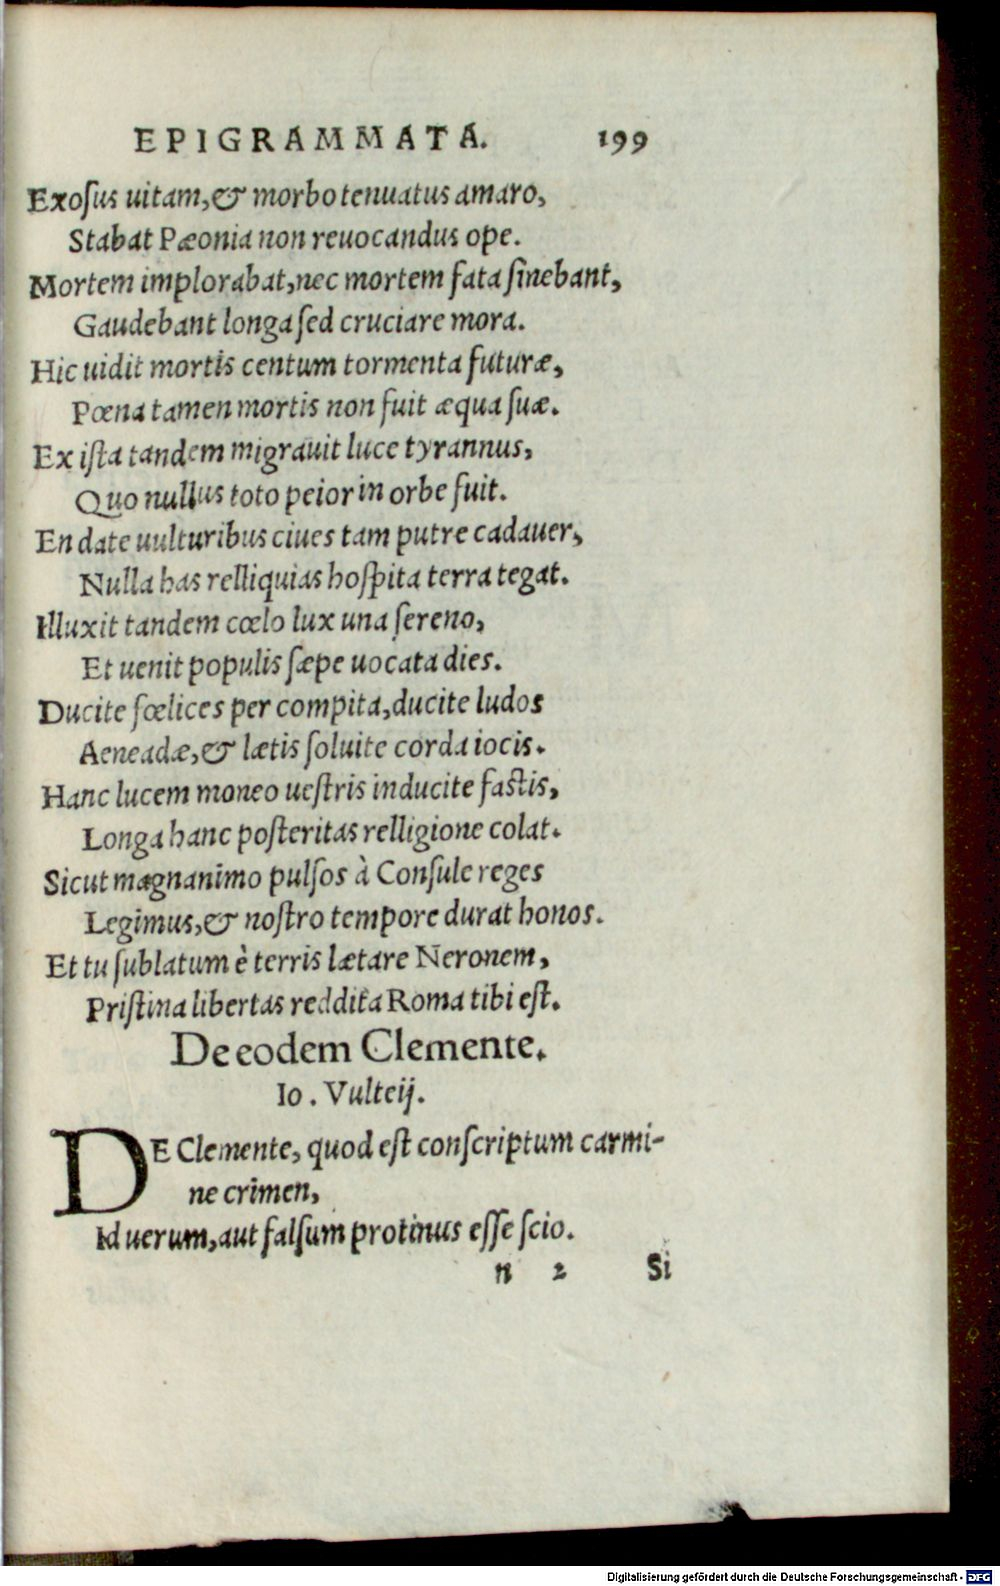 EPIGRAMMATA. 199
Exoſus uitam,& morbo tenuatus amaro,
Stabat Pæonia non reuocandus ope.
Mortem implorabat,nec mortem fata ſinebant,
Gaudebant longa ſed cruciare mora.
Hic uidit mortis centum tormenta futuræ,
Pœna tamen mortis non fuit æqua ſuæ.
Ex iſta tandem migrauit luce tyrannus,
Quo nullus toto peior in orbe fuit.
En date uulturibus ciues tam putre cadauer,
Nulla has relliquias hoſpita terra tegat.
Illuxit tandem cœlo lux una ſereno,
Et uenit populis ſæpe uocata dies.
Ducite fœlices per compita,ducite ludos
Aeneadæ,& lætis ſoluite corda iocis.
Hanc lucem moneo ueſtris inducite faſtis,
Longa hanc poſteritas relligione colat.
Sicut magnanimo pulſos à Conſule reges
Legimus,& noſtro tempore durat honos.
Et tu ſublatum è terris lætare Neronem,
Priſtina libertas reddita Roma tibi eſt.
De eodem Clemente.
Io. Vulteij.
DE Clemente, quod eſt conſcriptum carmi-
ne crimen,
Id uerum,aut falſum protinus eſſe ſcio.
n 2 Si
Digitalisierung gefördert durch die Deutsche Forschungsgemeinschaft - DFG